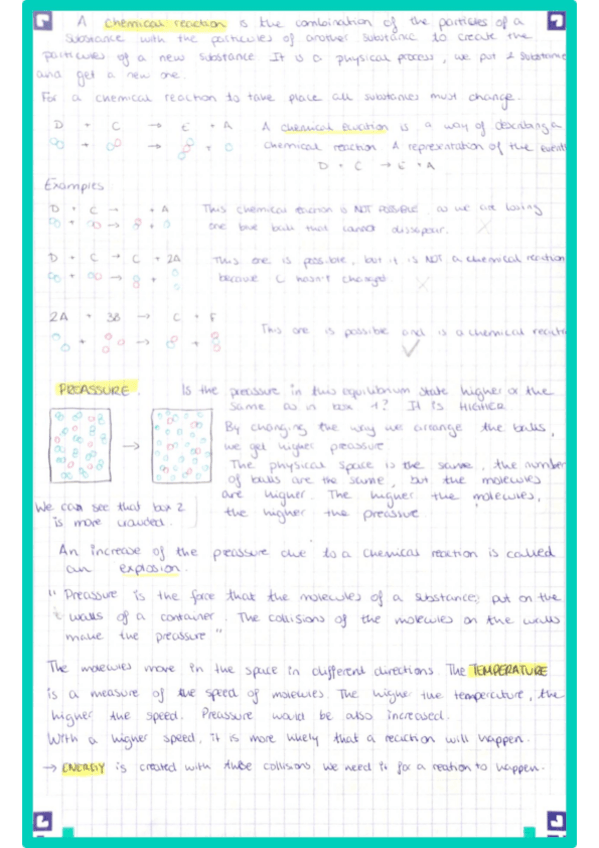 A chemical reaction is the combination of the particles of a
substance with the particules of another substance to create the
particules of a new substance. It is a physical process, we put 2 substance
and get a new one.
For a chemical reaction to take place all substances must change.
D + C → E + A A chemical equation is a way of describing a
chemical reaction A representation of the event
D + C → E + A
Examples
D + C → + A This chemical reaction is NOT POSSIBLE as we are losing
one blue ball that cannot dissapear.
D + C → C + 2A This one is possible, but it is NOT a chemical reaction
because C hasn't changed
2A + 3B → C + F
This one is possible and is a chemical reactio
PREASSURE. Is the preassure in this equilibrium state higher or the
same as in box 1? It is HIGHER
By changing the way we arrange the balls,
we get higher preassure
The physical space is the same, the number
of balls are the same, but the molecules
are higher. The higher the molecules,
the higher the preassure
We can see that box 2
is more crowded.
An increase of the preassure due to a chemical reaction is called
an explosion.
"Preassure is the force that the molecules of a substances put on the
walls of a container. The collisions of the molecules on the walls
make the preassure"
The molecules move in the space in different directions. The TEMPERATURE
is a measure of the speed of molecules. The higher the temperature, the
higher the speed. Preassure would be also increased.
With a higher speed, it is more likely that a reaction will happen.
→ ENERGY is created with these collisions we need it for a reation to happen.